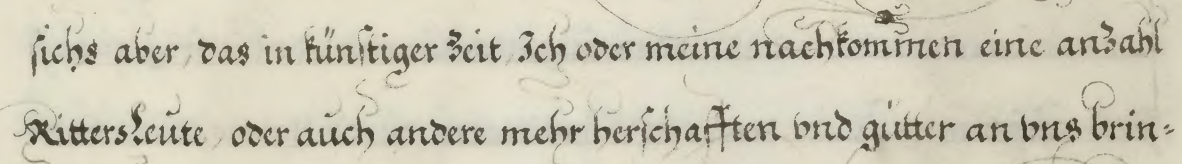 sichs aber, das in künftiger Zeit, Ich oder meine nachkommen eine anzahl
Rittersleüte, oder aüch andere mehr herschafften vnd gütter an vns brin=